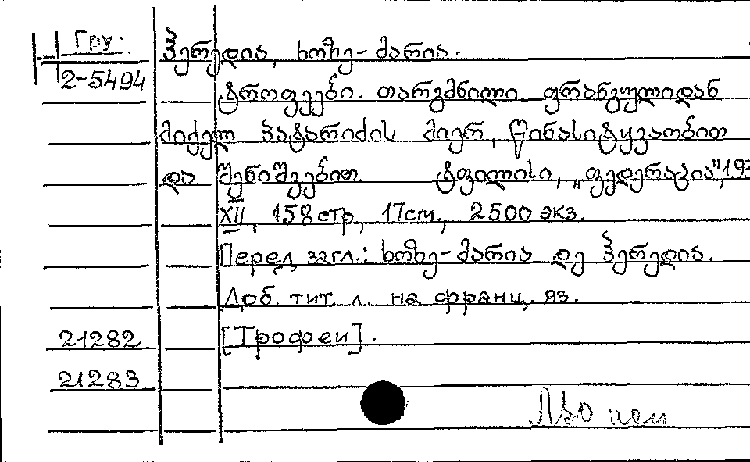 Гру. ჰერედია, ხოზე-მარია.
2-5494 ტროფეები. თარგმნილი ფრანგულიდან
მიქელ პატარიძის მიერ, წინასიტყვაობით
და შენიშვებით. ტფილისი, „ფედერაცია", 193
XII, 158 стр., 17см., 2500 экз.
Перед загл.: ხოზე-მარია დე ჰერედია.
Доб. тит. л. на франц. яз.
21282 [Трофеи].
21283